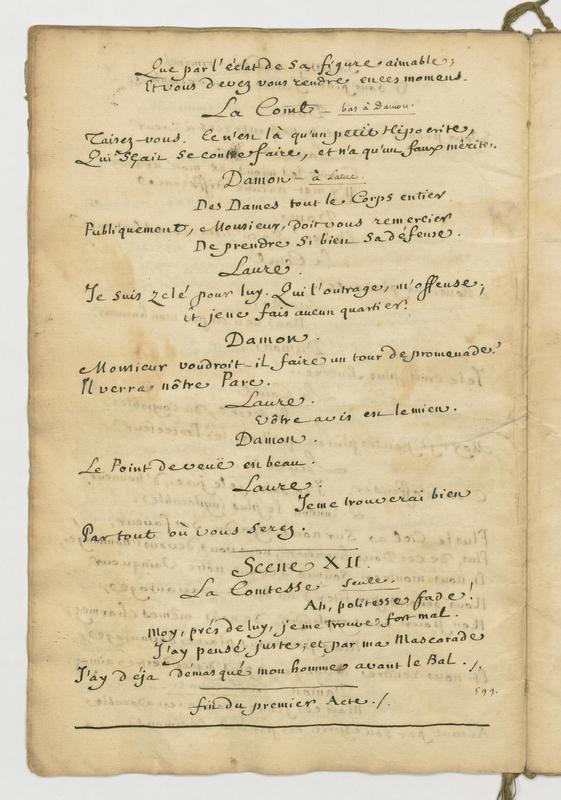 Que par l'éclat de sa figure aimable;
Et vous devez vous rendre en ces momens.
La Comt. — bas à Damon.
Taisez-vous. Ce n'est là qu'un petit Hipocrite,
Qui sçait se contrefaire, et n'a qu'un faux mérite.
Damon — à Laure.
Des Dames tout le Corps entier
Publiquement, Monsieur, doit vous remercier
De prendre si bien sa défense.
Laure.
Je suis zelé pour luy. Qui l'outrage, m'offense;
Et je ne fais aucun quartier.
Damon.
Monsieur voudroit-il faire un tour de promenade?
Il verra nôtre Parc.
Laure.
Vôtre avis est le mien.
Damon.
Le Point de veuë en beau.
Laure.
Je me trouverai bien
Par tout où vous serez.
Scene XII.
La Comtesse seule.
Ah, politesse fade!
Moy, prés de luy, je me trouve fort mal.
J'ay pensé juste; et par ma Mascarade
J'ay déja démasqué mon homme avant le Bal ./.
599.
fin du premier Acte ./.